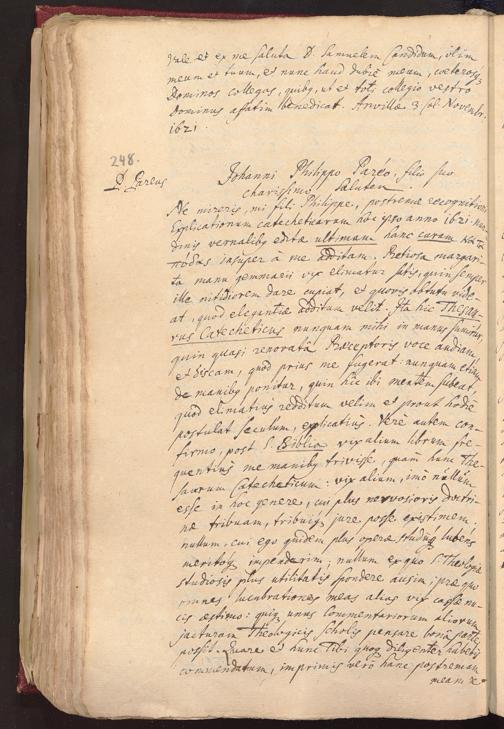 Vale et ex me saluta D. Samuelem Candidum, olim
meum et tuum, et nunc haud dubiè meum, cœterosq;
Dominos collegas, quibq, ut et toti collegio vestro
Dominus affatim benedicat. Anvillæ 3 Novembr.
1621.
248.
D. Pareus
Johanni Philippo Paréo, filio suo
charissimo Salutem.
Ne mireris, mi fili Philippe, postremæ recognitioni
Explicationum catecheticarum hoc ipso anno 1621. nun-
dinis vernalibq editæ ultimam hanc curam
insuper à me additam. Pretiosa margari-
ta manu gemmarii vix elimatur satis, quin semper
ille nitidiorem dare cupiat, et quovis obtutu vide-
at, quod elegantiæ additum velit. Ita hic Thesau-
rus Catecheticus nunquam mihi in manus sumitur,
quin quasi renovatâ Præceptoris voce audiam
et discam, quod prius me fugerat: nunquam etiam
de manibq ponitur, quin hic ibi mentem subeat,
quod elimatius redditum velim et prout hodie
postulat seculum, explicatius. Verè autem con-
firmo, post S. Biblia vix alium librum fre-
quentius me manibq trivisse, quàm hunc The-
saurum Catecheticum: vix alium, imò nullum
esse in hoc genere, cui plus nervosioris doctri-
næ tribuam, tribuiq; jure posse existimem:
nullum, cui ego quidem plus operæ studiiq lubens
meritoq impenderim; nullum ex quo S. Theologiæ
studiosis plus utilitatis spondere ausim; præ quo
omnes lucubrationes meas alias vix cassæ nu-
cis æstimo: quiq unus Commentariorum aliorum
jacturam Theologicis Scholis pensare bonâ parte
possit. Quare et hunc Tibi quoq diligenter habeto
commendatum, imprimis verò hanc postremam
meam